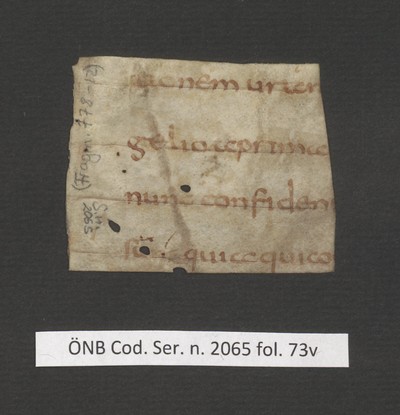 onem urten
gelio ceprimce
nunc confiden
sūt quice quico
(Fragm. 778-12)
S.n.
2065
ÖNB Cod. Ser. n. 2065 fol. 73v